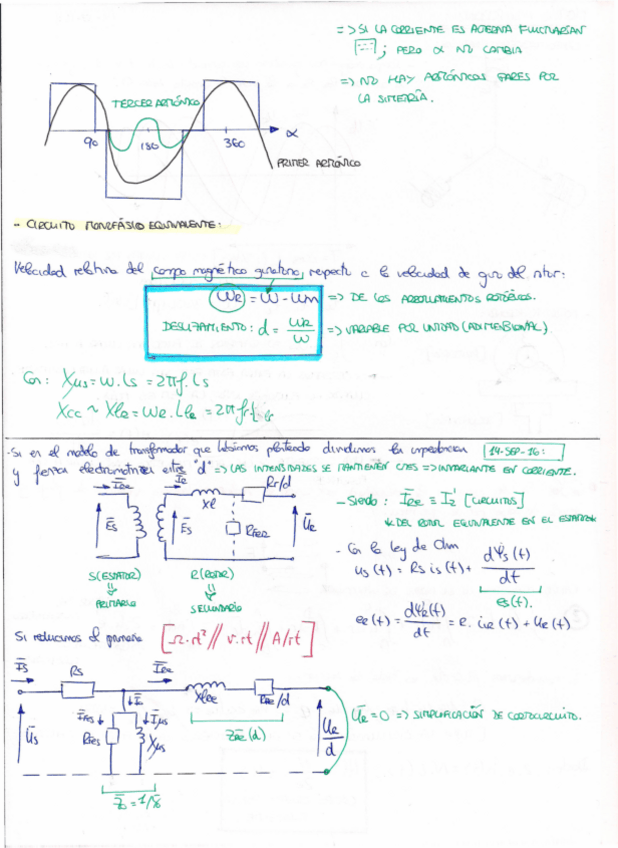 => SI LA CORRIENTE ES ALTERNA FLUCTUARÍAN
; PERO α NO CAMBIA
=> NO HAY ARMÓNICOS PARES POR
LA SIMETRÍA.
TERCER ARMÓNICO
90
180
360
α
PRIMER ARMÓNICO
- CIRCUITO MONOFÁSICO EQUIVALENTE:
Velocidad relativa del campo magnético giratorio, respecto a la velocidad de giro del rotor:
ωR = ω - ωm => DE LOS ARROLLAMIENTOS ROTÓRICOS.
DESLIZAMIENTO: d = ωR/ω => VARIABLE POR UNIDAD (ADIMENSIONAL)
Con: Xμs = ω.Ls = 2πf.Ls
Xcc ~ Xle = ωe.
- Si en el modelo de transformador que habíamos planteado dividimos la impedancia
14-SEP-16:
y fuerza electromotriz entre "d" => LAS INTENSIDADES SE MANTIENEN => INVARIANTE EN CORRIENTE.
Rr/d
Xl
Es
Es
RFeR
UR
S(ESTATOR)
PRIMARIO
R(ROTOR)
SECUNDARIO
- Siendo: = I2' [CIRCUITOS]
DEL ROTOR EQUIVALENTE EN EL ESTATOR
- Con la ley de Ohm
us(t) = Rs is(t) + dΨs(t)/dt
es(t).
eR(t) = dΨR(t)/dt = R. iR(t) + UR(t)
Si reducimos el primario [Ω.rt² // V.rt // A/rt]
Is
Rs
Us
RFes
Xμs
ZRe(d)
UR/d
UR = 0 => SIMPLIFICACIÓN DE CORTOCIRCUITO.